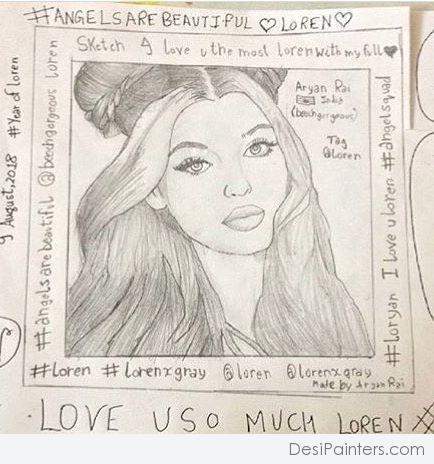 #ANGELSAREBEAUTIFUL ♡LOREN♡
Sketch I love u the most loren with my full ♥
Aryan Rai
India
(beechgorgeous)
Tag
@loren
9 August, 2018 #Year of loren
#angelsarebeautiful @beechgorgeous loren
#loryan I love u loren #angelsquad
#loren #lorenxgray @loren @lorenxgray
Made by Aryan Rai
LOVE U SO MUCH LOREN XX
DesiPainters.com